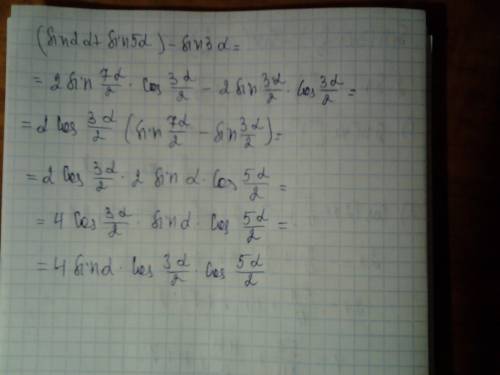 (sin2α+sin5α)-sin3α=
=2sin 7α/2 · cos 3α/2 - 2sin 3α/2 · cos 3α/2 =
=2cos 3α/2 (sin 7α/2 - sin 3α/2)=
=2cos 3α/2 · 2 sin α · cos 5α/2 =
=4cos 3α/2 · sinα · cos 5α/2 =
=4 sinα · cos 3α/2 · cos 5α/2